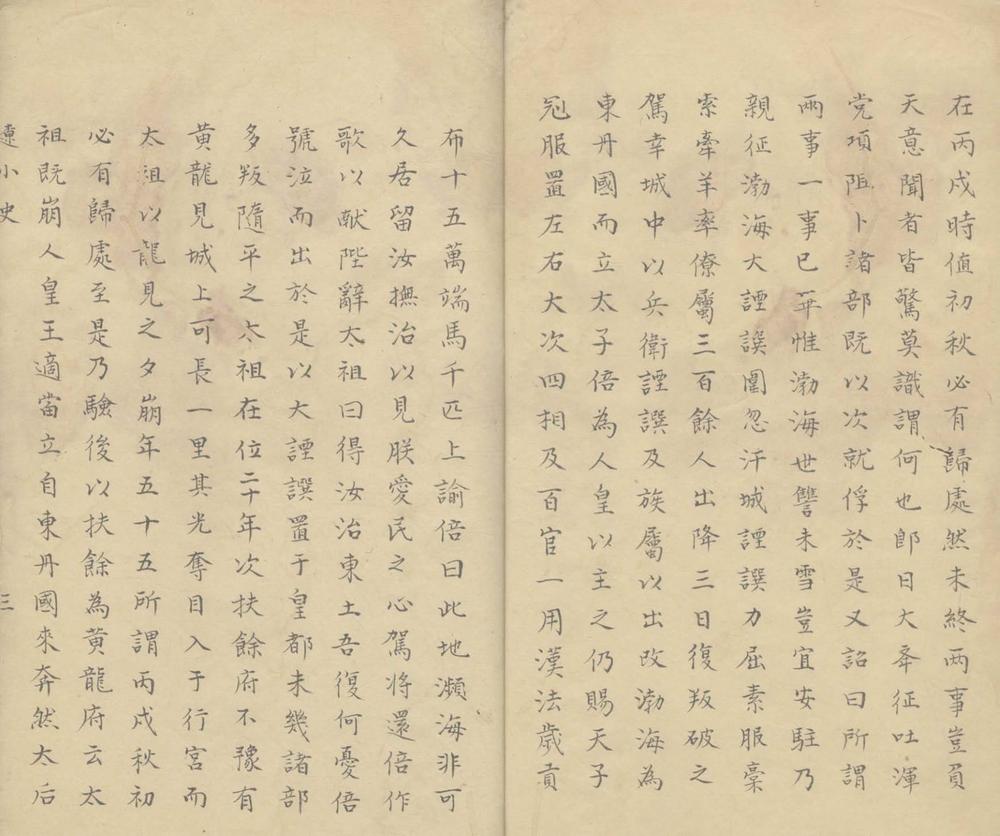 在丙戌時值初秋必有歸處然未終兩事豈負
天意聞者皆驚莫識謂何也即日大舉征吐渾
党項阻卜諸部既以次就俘於是又詔曰所謂
兩事一事已毕惟渤海世讐未雪豈宜安駐乃
親征渤海大諲譔圍忽汗城諲譔力屈素服稾
索牽羊率僚屬三百餘人出降三日復叛破之
駕幸城中以兵衛諲譔及族屬以出改渤海為
東丹國而立太子倍為人皇以主之仍賜天子
冠服置左右大次四相及百官一用漢法歲貢
布十五萬端馬千匹上諭倍曰此地瀕海非可
久居留汝撫治以見朕愛民之心駕将還倍作
歌以獻陛辭太祖曰得汝治東土吾復何憂倍
號泣而出於是以大諲譔置于皇都未幾諸部
多叛隨平之太祖在位二十年次扶餘府不豫有
黄龍見城上可長一里其光奪目入于行宮而
太祖以龍見之夕崩年五十五所謂丙戌秋初
必有歸處至是乃驗後以扶餘為黄龍府云太
祖既崩人皇王適當立自東丹國來奔然太后
遼小史 三